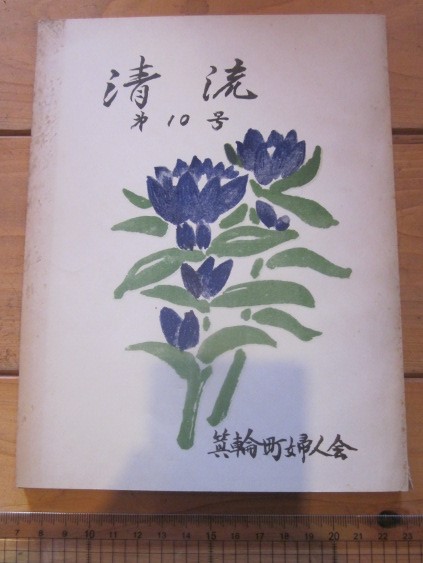 清流
第10号
箕輪町婦人会
7 8 9 10 11 12 13 14 15 16 17 18 19 20 21 22 23